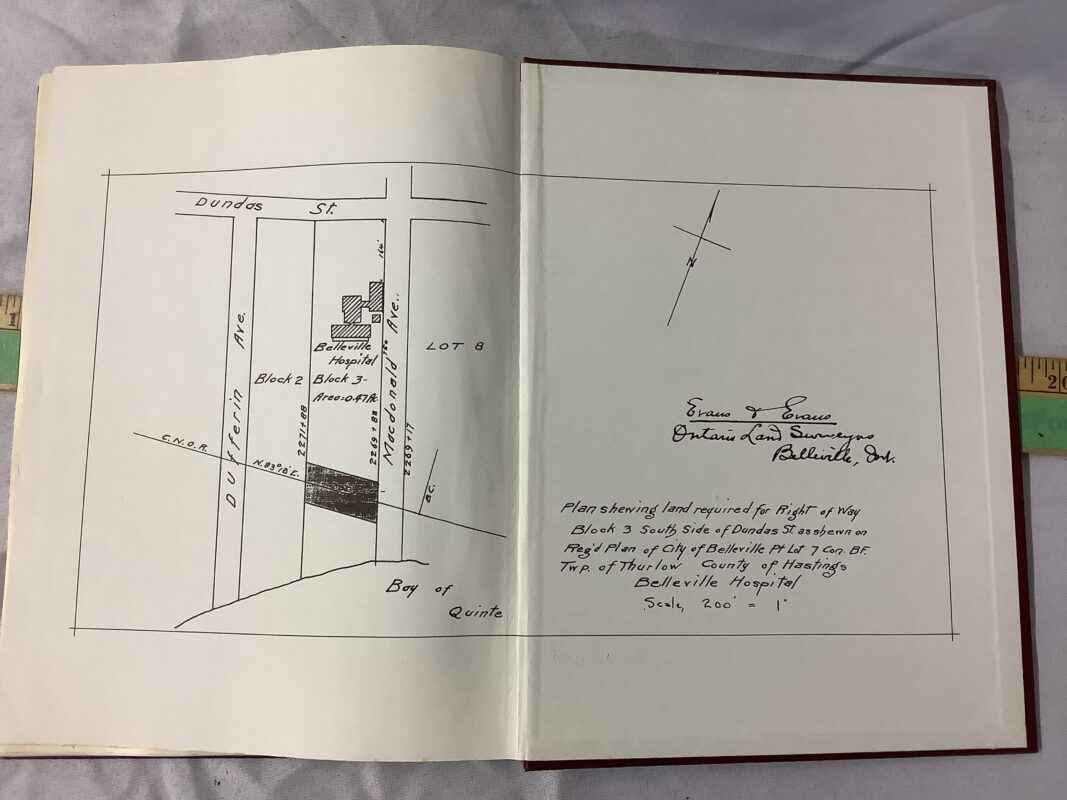 Dundas St.
Dufferin Ave.
Macdonald Ave.
160'
160
Belleville
Hospital
Block 2
Block 3-
Area=0.47Ac.
LOT 8
2271+88
2269+88
2269+17
C.N.O.R.
N.83°18'E.
B.C.
Bay of
Quinte
N
Evans & Evans
Ontario Land Surveyors
Belleville, Ont.
Plan shewing land required for Right of Way
Block 3 South Side of Dundas St. as shewn on
Reg'd Plan of City of Belleville Pt Lot 7 Con. BF.
Twp. of Thurlow County of Hastings
Belleville Hospital
Scale, 200' = 1"
1
20